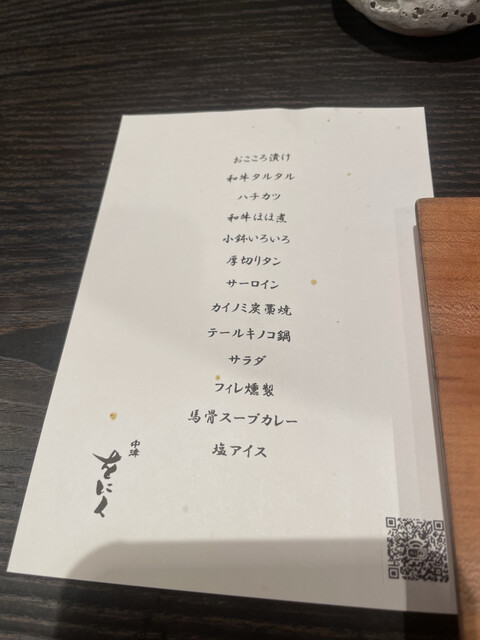 おこころ漬け
和牛タルタル
ハチカツ
和牛ほほ煮
小鉢いろいろ
厚切りタン
サーロイン
カイノミ炭藁焼
テールキノコ鍋
サラダ
フィレ燻製
馬骨スープカレー
塩アイス
中津
をにく